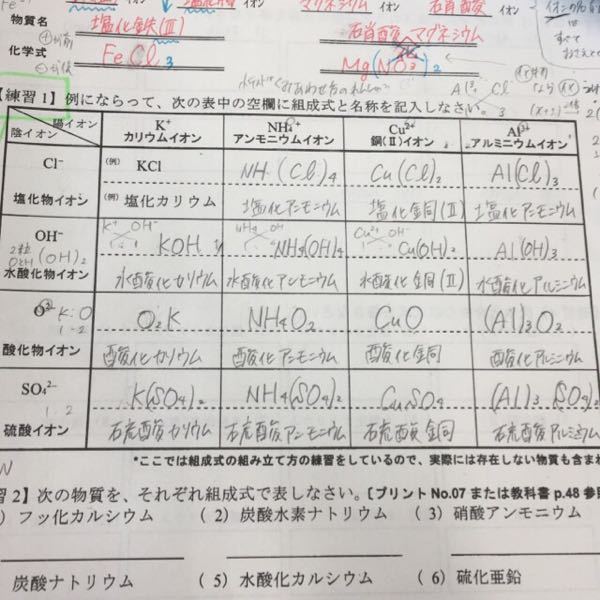 物質名 塩化鉄(Ⅲ) 硝酸マグネシウム
化学式 FeCl3 Mg(NO3)2
【練習1】例にならって、次の表中の空欄に組成式と名称を記入しなさい。
陽イオン K+ NH4+ Cu2+ Al3+
陰イオン カリウムイオン アンモニウムイオン 銅(Ⅱ)イオン アルミニウムイオン
Cl− (例) KCl NH(Cl)4 Cu(Cl)2 Al(Cl)3
塩化物イオン (例) 塩化カリウム 塩化アンモニウム 塩化銅(Ⅱ) 塩化アルミニウム
OH− KOH NH4(OH)4 Cu(OH)2 Al(OH)3
水酸化物イオン 水酸化カリウム 水酸化アンモニウム 水酸化銅(Ⅱ) 水酸化アルミニウム
O2− O2K NH4O2 CuO (Al)3O2
酸化物イオン 酸化カリウム 酸化アンモニウム 酸化銅 酸化アルミニウム
SO42− K(SO4)2 NH4(SO4)2 CuSO4 (Al)3(SO4)2
硫酸イオン 硫酸カリウム 硫酸アンモニウム 硫酸銅 硫酸アルミニウム
*ここでは組成式の組み立て方の練習をしているので、実際には存在しない物質も含まれ
習2】次の物質を、それぞれ組成式で表しなさい。〔プリント No.07 または教科書 p.48 参照
) フッ化カルシウム (2) 炭酸水素ナトリウム (3) 硝酸アンモニウム
炭酸ナトリウム (5) 水酸化カルシウム (6) 硫化亜鉛